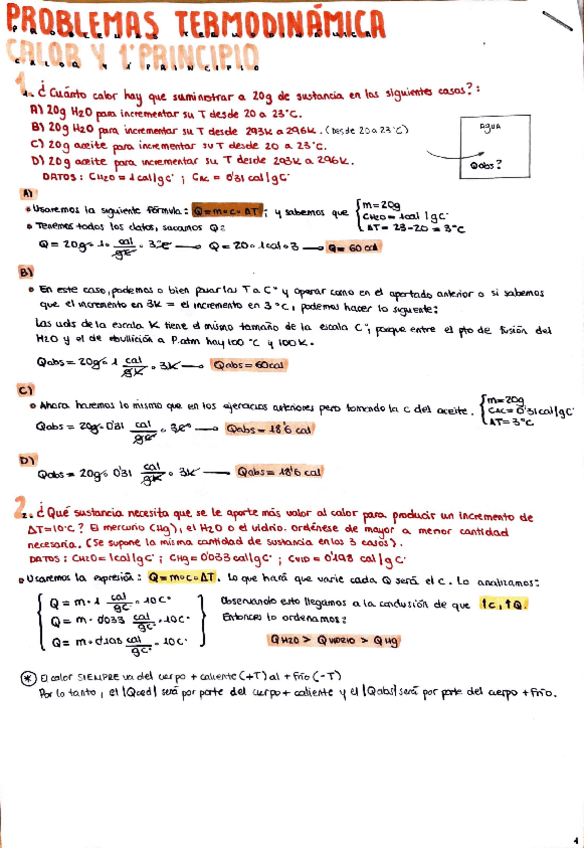 PROBLEMAS TERMODINÁMICA
CALOR Y 1ºPRINCIPIO
1. ¿Cuánto calor hay que suministrar a 20g de sustancia en los siguientes casos?:
A) 20g H2O para incrementar su T desde 20 a 23ºC.
B) 20g H2O para incrementar su T desde 293K a 296K. (Desde 20 a 23ºC)
C) 20g aceite para incrementar su T desde 20 a 23ºC.
D) 20g aceite para incrementar su T desde 293K a 296K.
DATOS: CH2O = 1cal/gCº ; CAC = 0'31 cal/gCº
AGUA
Qabs?
A)
• Usaremos la siguiente fórmula: Q=m·c·ΔT ; y sabemos que { m=20g
CH2O = 1cal/gCº
ΔT = 23-20 = 3ºC
• Tenemos todos los datos, sacamos Q:
Q = 20g · 1 · cal/gCº · 3Cº → Q = 20 · 1cal · 3 → Q = 60 cal
B)
• En este caso, podemos o bien pasar las T a Cº y operar como en el apartado anterior o si sabemos
que el incremento en 3K = el incremento en 3ºC, podemos hacer lo siguiente:
Las uds de la escala K tiene el mismo tamaño de la escala Cº, porque entre el pto de fusión del
H2O y el de ebullición a P.atm hay 100ºC y 100K.
Qabs = 20g · 1 cal/gK · 3K → Qabs = 60cal
C)
• Ahora haremos lo mismo que en los ejercicios anteriores pero tomando la c del aceite. { m=20g
CAC = 0'31cal/gCº
ΔT = 3ºC
Qabs = 20g · 0'31 cal/gCº · 3Cº → Qabs = 18'6 cal
D)
Qabs = 20g · 0'31 cal/gK · 3K → Qabs = 18'6 cal
2. ¿Qué sustancia necesita que se le aporte más valor al calor para producir un incremento de
ΔT=10ºC? El mercurio (Hg), el H2O o el vidrio. Ordénese de mayor a menor cantidad
necesaria. (Se supone la misma cantidad de sustancia en los 3 casos).
DATOS: CH2O = 1cal/gCº ; CHg = 0'033 cal/gCº ; CVID = 0'198 cal/gCº
• Usaremos la expresión: Q=m·c·ΔT. Lo que hará que varíe cada Q será el c. Lo analizamos:
Q = m · 1 cal/gCº · 10Cº
Q = m · 0'033 cal/gCº · 10Cº
Q = m · 0'198 cal/gCº · 10Cº
Observando esto llegamos a la conclusión de que ↑c, ↑Q.
Entonces lo ordenamos:
QH2O > QVIDRIO > QHg
* El calor SIEMPRE va del cuerpo + caliente (+T) al + frío (-T)
Por lo tanto, el |Qced| será por parte del cuerpo + caliente y el |Qabs| será por parte del cuerpo + frío.
1